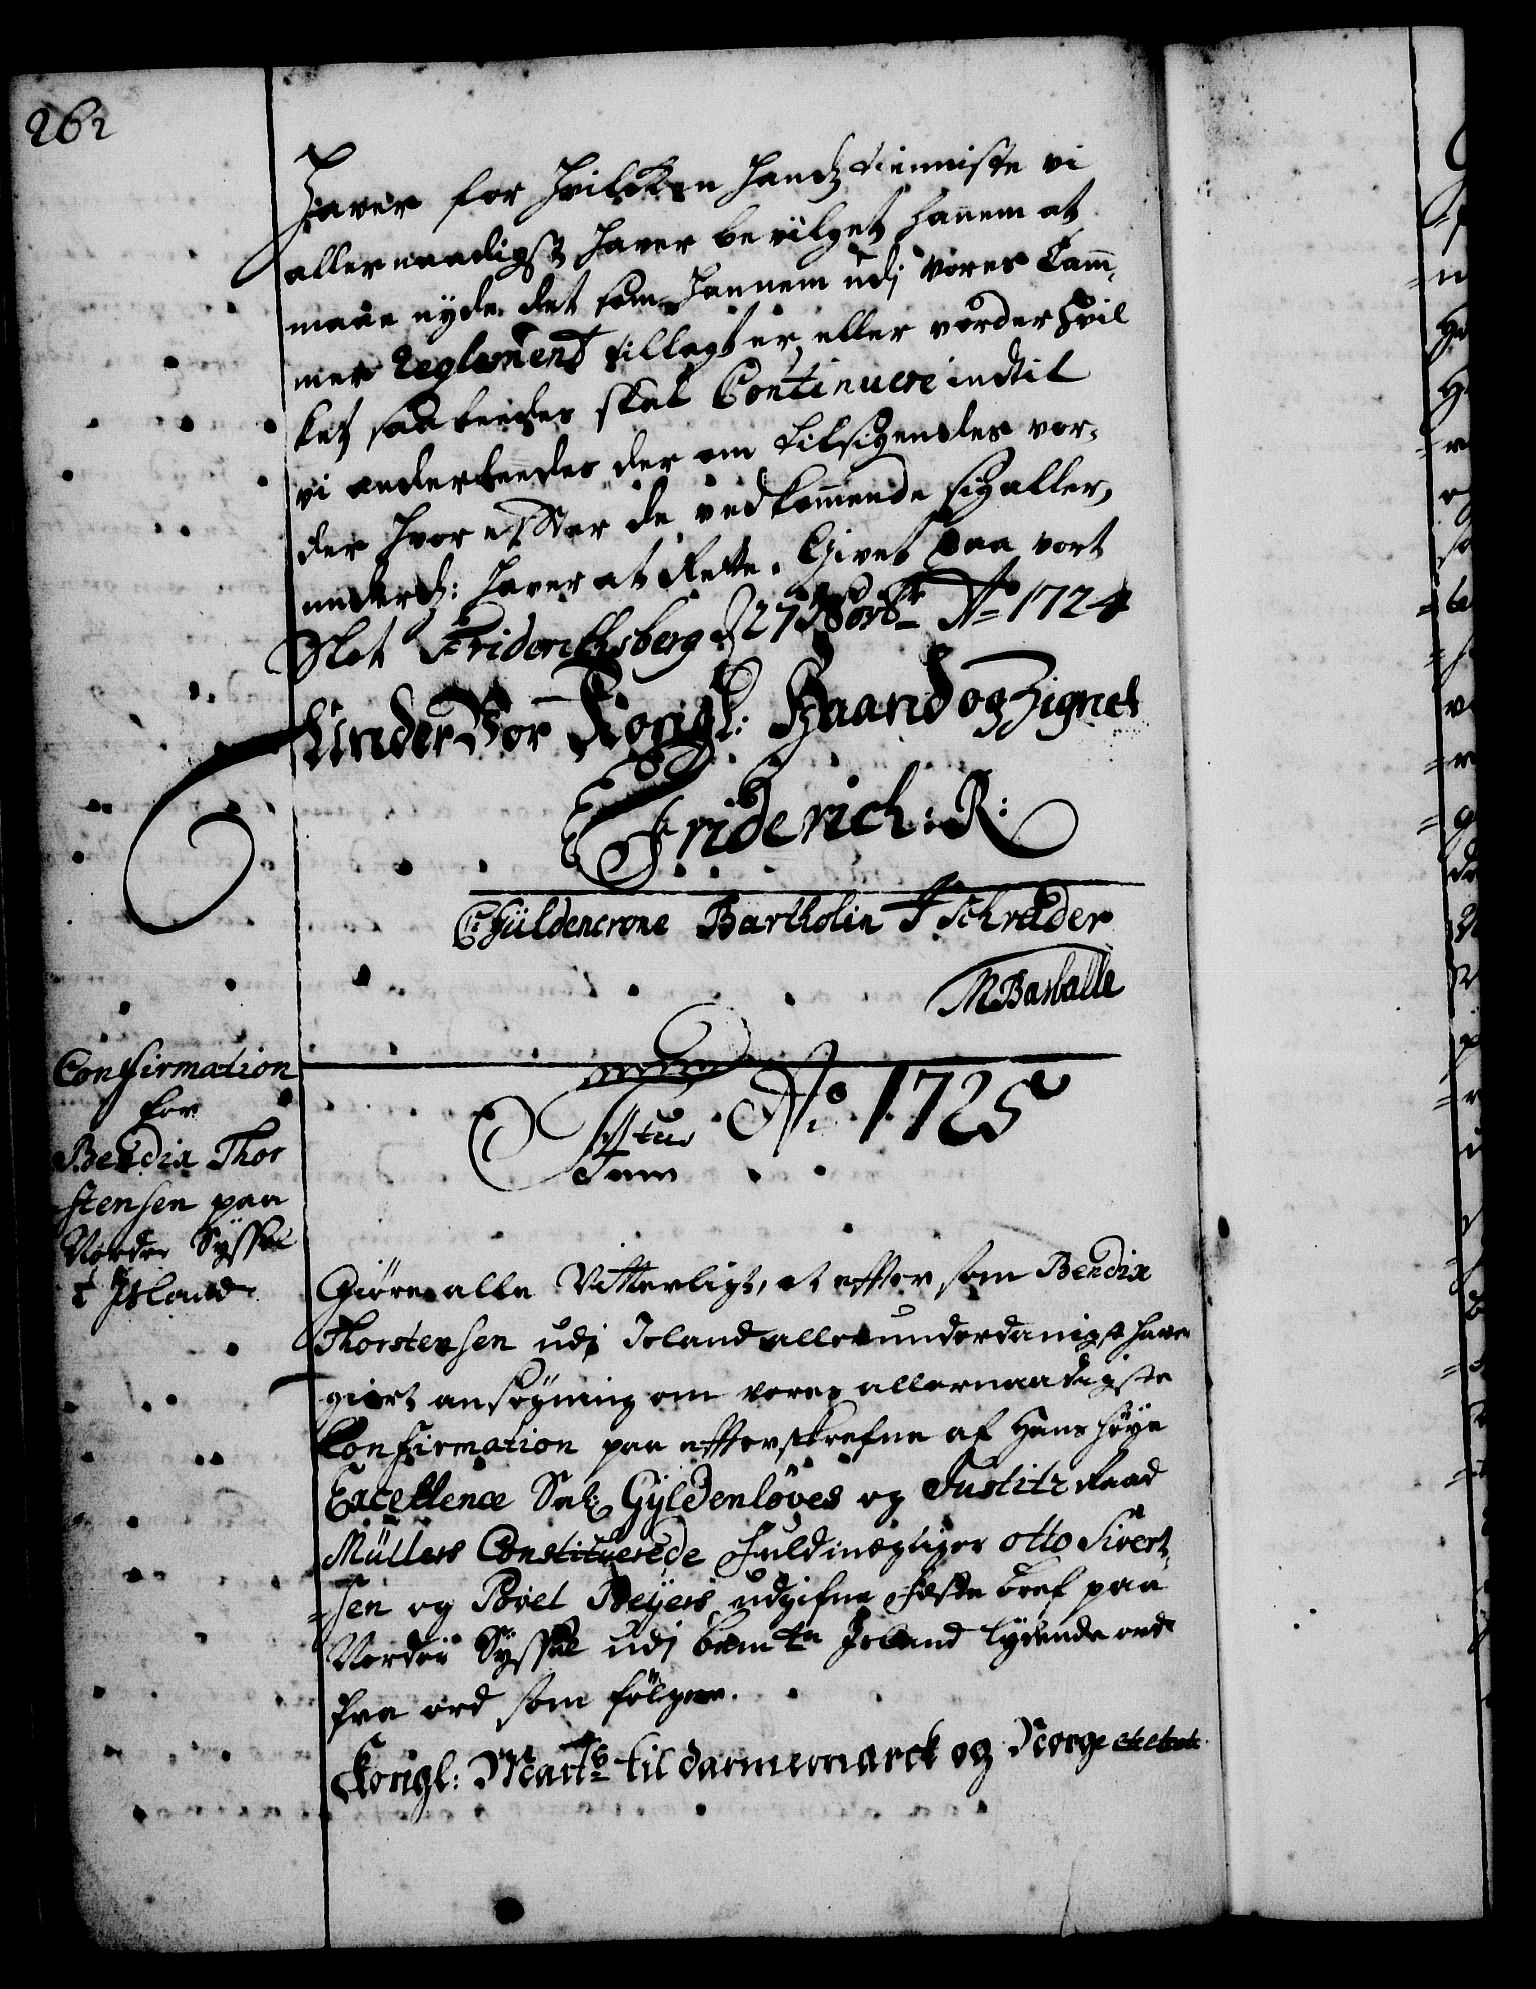 262
haver for hvilcken hands tienniste vi
allernaadigst haver bevilget hannem at
maae nyde det som hannem udj vores Cam¬
mer Reglement tillagt er, eller vorder hvil
ket saaleedes skal Continuere indtil
vi anderleedes der om tilsigendes vor¬
der hvor effter de vedkommende sig aller,
underd: haver at rette. Givet paa vort
Slot Friderichsberg d 27 Ao 1724
Under Vor Kongl: Haand og Zignet
Friderich: R:
C: Güldencrone Bartholin F Schrader
M Basballe
Ao 1725
Confirmation
for
Bendix Thor
stensen paa
Norder Sÿssel
i Jsland
Giøre alle Vitterligt, at effter som Bendix
Thorstensen udj Island allerunderdanigst haver
giort ansøgning om vores allernaadigste
Confirmation paa effterskrefne af Hans høye
Excellence Sal: Gyldenløves og Justitz Raad
Müllers Constituerede Fuldmegtiger Otto Sivert¬
=sen og Povel Beÿers udgifne Feste bref paa
Norder Sÿssel udj bemte Jsland lydende ord
fra ord som følger.
Kongl: Mayts til dannemarck og Norge etc etc etc